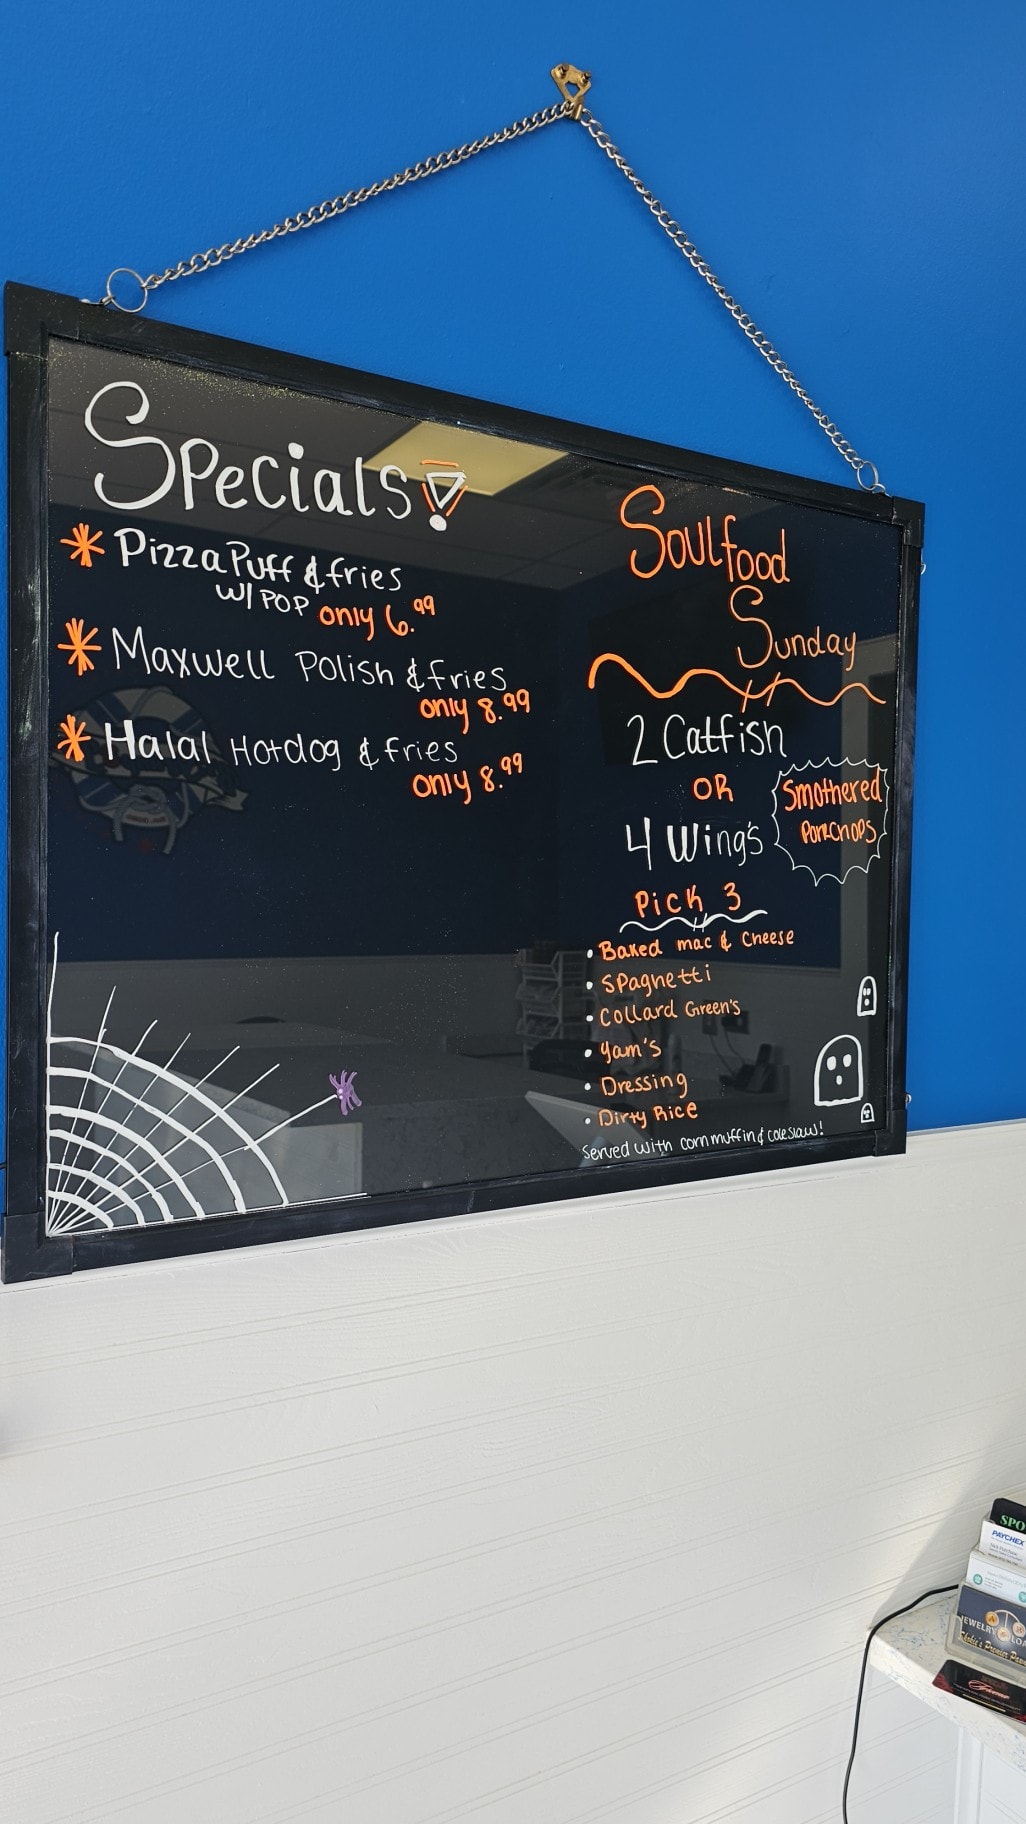 Specials!
Pizza Puff & fries
w/ POP only 6.99
Maxwell Polish & fries
only 8.99
Halal Hotdog & fries
only 8.99
Soulfood
Sunday
2 Catfish
OR
4 Wing's
Smothered
Porkchops
Pick 3
• Baked mac & Cheese
• Spaghetti
• Collard Green's
• Yam's
• Dressing
• Dirty Rice
Served with corn muffin & coleslaw!
SPO
PAYCHEX
JEWELRY & LOA